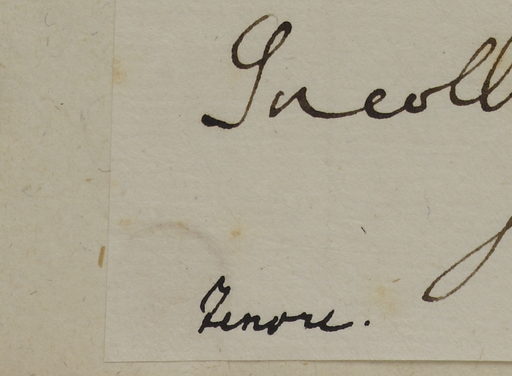 In coll
Tenore.